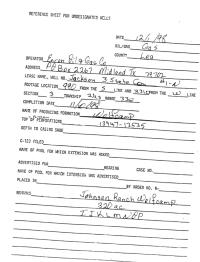 REFERENCE SHEET FOR UNDESIGNATED WELLS
DATE 12/1/98
OIL/GAS Gas
COUNTY Lea
OPERATOR Oil & Gas Co
ADDRESS PO Box 2267 Midland TX 79702
LEASE NAME, WELL NO. Jackson 3 State Com #1-N
FOOTAGE LOCATION 990 FROM THE S LINE AND FROM THE W LINE
SECTION 3 TOWNSHIP RANGE 33E
COMPLETION DATE
NAME OF PRODUCING FORMATION Wolfcamp
TOP OF PERFORATIONS 13447-13535
DEPTH TO CASING SHOE
C-123 FILED
NAME OF POOL FOR WHICH EXTENSION WAS ASKED
ADVERTISED FOR HEARING CASE NO.
NAME OF POOL FOR WHICH EXTENSION WAS ADVERTISED
PLACED IN BY ORDER NO. R-
REMARKS Johnson Ranch Wolfcamp
320 ac